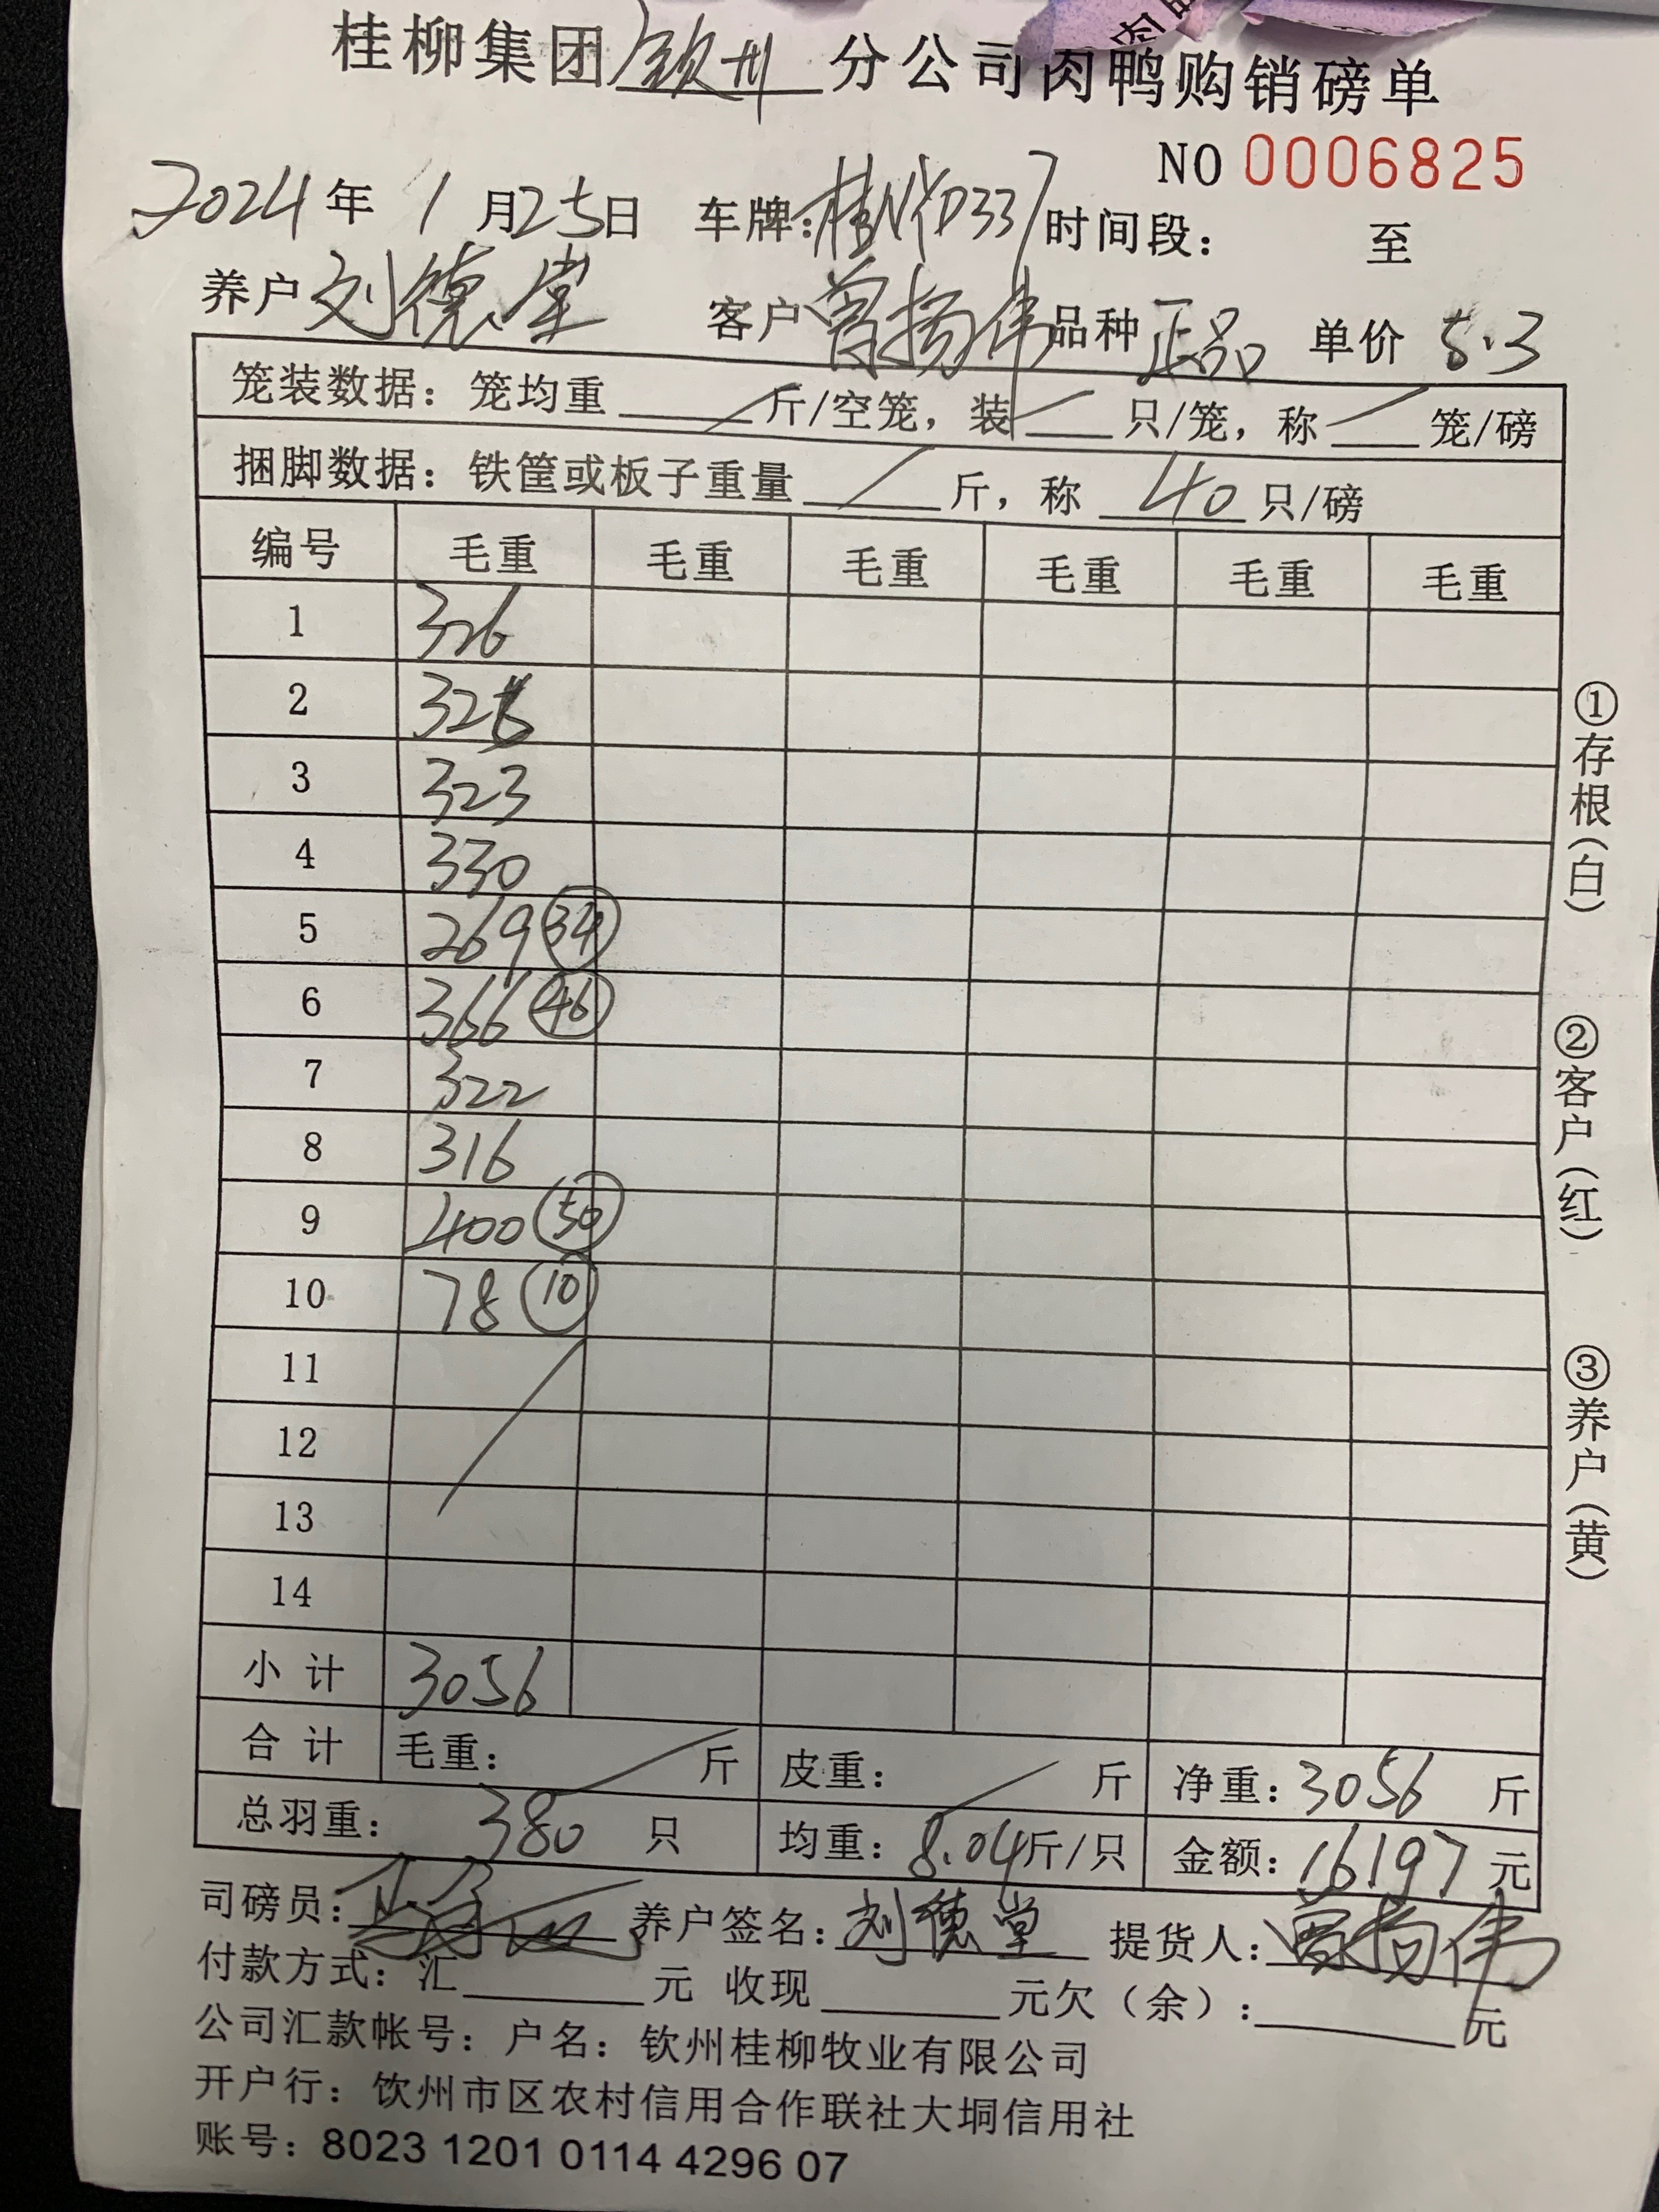 桂柳集团 钦州 分公司肉鸭购销磅单
NO 0006825
2024年 1月25日 车牌: 时间段: 至
养户 刘德堂 客户 曾扬伟 品种 正品 单价 5.3
笼装数据: 笼均重 / 斤/空笼, 装 / 只/笼, 称 / 笼/磅
捆脚数据: 铁筐或板子重量 / 斤, 称 40 只/磅
编号 毛重 毛重 毛重 毛重 毛重 毛重
1 326
2
3 323
4 330
5 269 34
6 366 46
7 322
8 316
9 400 50
10 78 10
11
12
13
14
小计 3056
合计 毛重: / 斤 皮重: / 斤 净重: 3056 斤
总羽重: 380 只 均重: 8.04斤/只 金额: 16197 元
司磅员: 养户签名: 刘德堂 提货人: 曾扬伟
付款方式: 汇 元 收现 元欠(余): 元
公司汇款帐号: 户名: 钦州桂柳牧业有限公司
开户行: 饮州市区农村信用合作联社大垌信用社
账号: 8023 1201 0114 4296 07
①存根(白)
②客户(红)
③养户(黄)